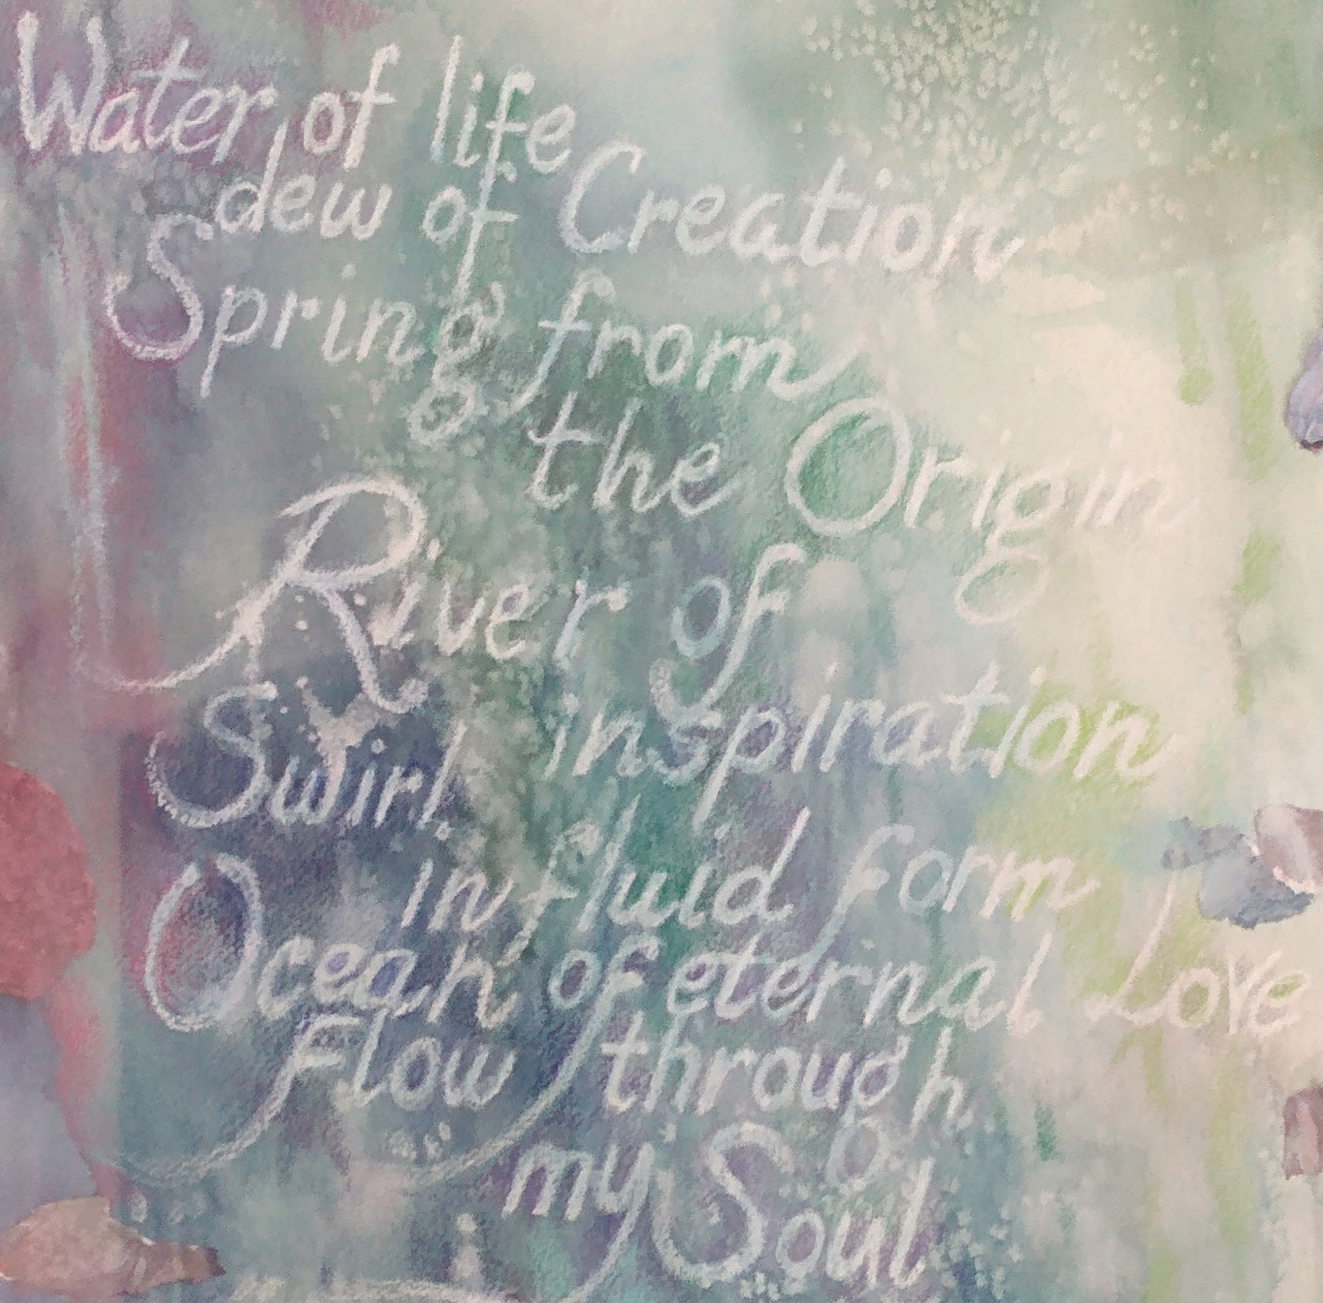 Water of life,
dew of Creation
Spring from
the Origin
River of
inspiration
Swirl
in fluid form
Ocean of eternal Love
Flow through
my Soul